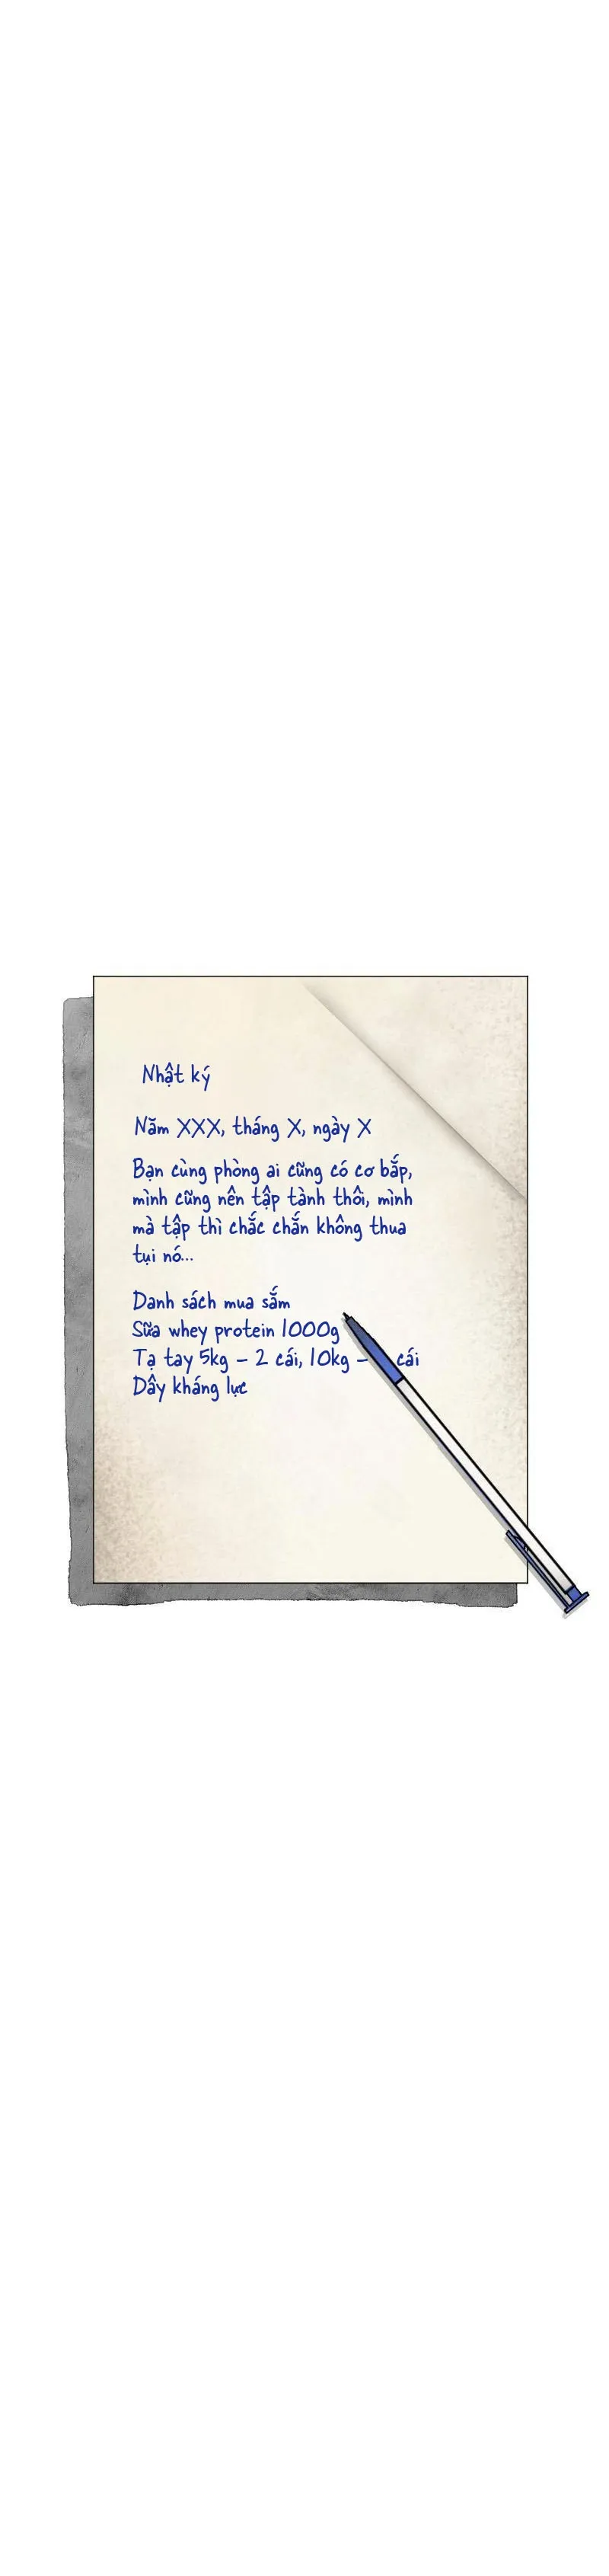 Nhật ký
Năm XXX, tháng X, ngày X
Bạn cùng phòng ai cũng có cơ bắp,
mình cũng nên tập tành thôi, mình
mà tập thì chắc chắn không thua
tụi nó...
Danh sách mua sắm
Sữa whey protein 1000g
Tạ tay 5kg - 2 cái, 10kg - cái
Dây kháng lực